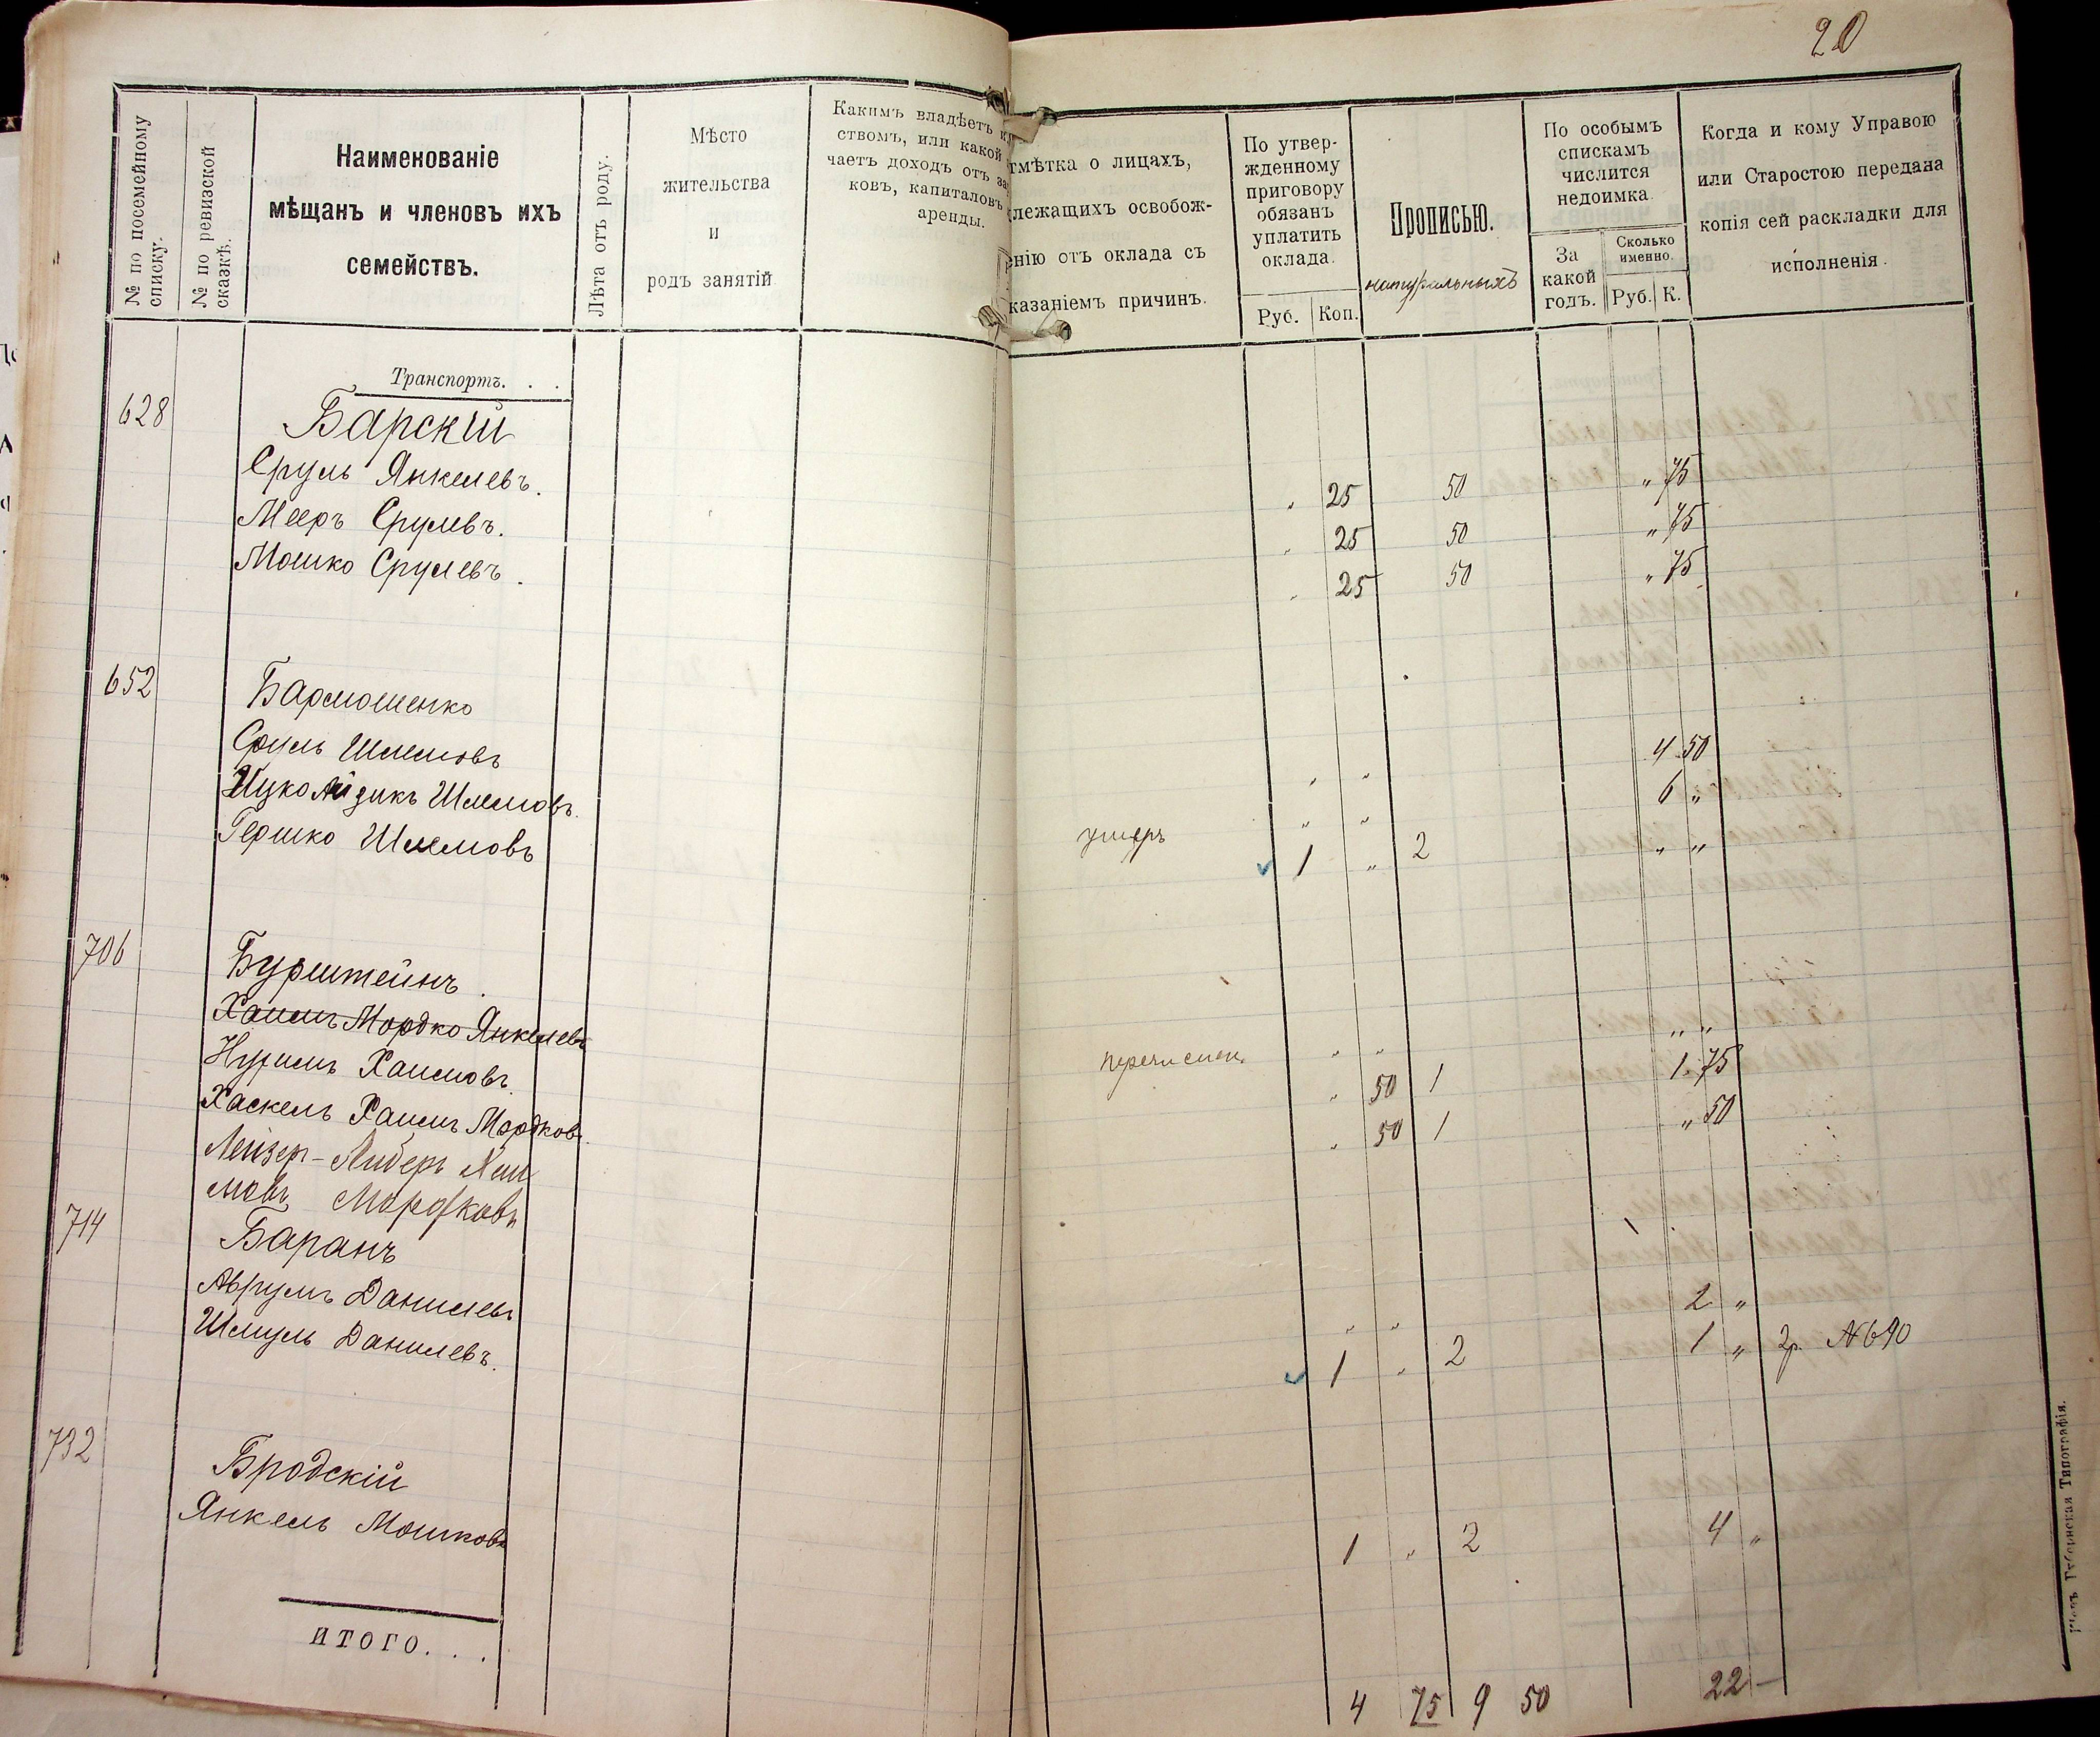 20
№ по посемейному
списку.
№ по ревизской
сказкѣ.
Наименованіе
мѣщанъ и членовъ ихъ
семействъ.
Лѣта отъ роду.
Мѣсто
жительства
и
родъ занятій
Какимъ владѣетъ
ствомъ, или какой
чаетъ доходъ отъ
ковъ, капиталовъ
аренды.
тмѣтка о лицахъ,
лежащихъ освобож-
енію отъ оклада съ
казаніемъ причинъ.
По утвер-
жденному
приговору
обязанъ
уплатить
оклада.
Руб. Коп.
Прописью.
натуральныхъ
По особымъ
спискамъ
числится
недоимка.
За
какой
годъ.
Сколько
именно.
Руб. К.
Когда и кому Управою
или Старостою передана
копія сей раскладки для
исполненія.
Транспортъ. . .
628 Барскій
Сруль Янкелевъ. „ 25 50 „ 75
Мееръ Срулевъ. „ 25 50 „ 75
Мошко Срулевъ. „ 25 50 „ 75
652 Бармошенко
Сруль Шлемовъ „ „ 4 50
Ицко Айзикъ Шлемовъ. умеръ „ „ 6 „
Гершко Шлемовъ 1 „ 2 „ „
706 Бурштейнъ.
Хаимъ Мордко Янкелевъ перечислен. „ „ „ „
Нухимъ Хаимовъ „ 50 1 1 75
Хаскель Хаимъ Мордковъ. „ 50 1 „ 50
Лейзер-Либеръ Хаи
мовъ Мордковъ
714 Баранъ
Аврумъ Данилевъ „ „ 2 „
Шмуль Данилевъ. 1 „ 2 1 „ 2р. №690
732 Бродскій
Янкель Мошковъ 1 „ 2 4 „
ИТОГО. . .
4 75 9 50 22 —
Губернская Типографія.